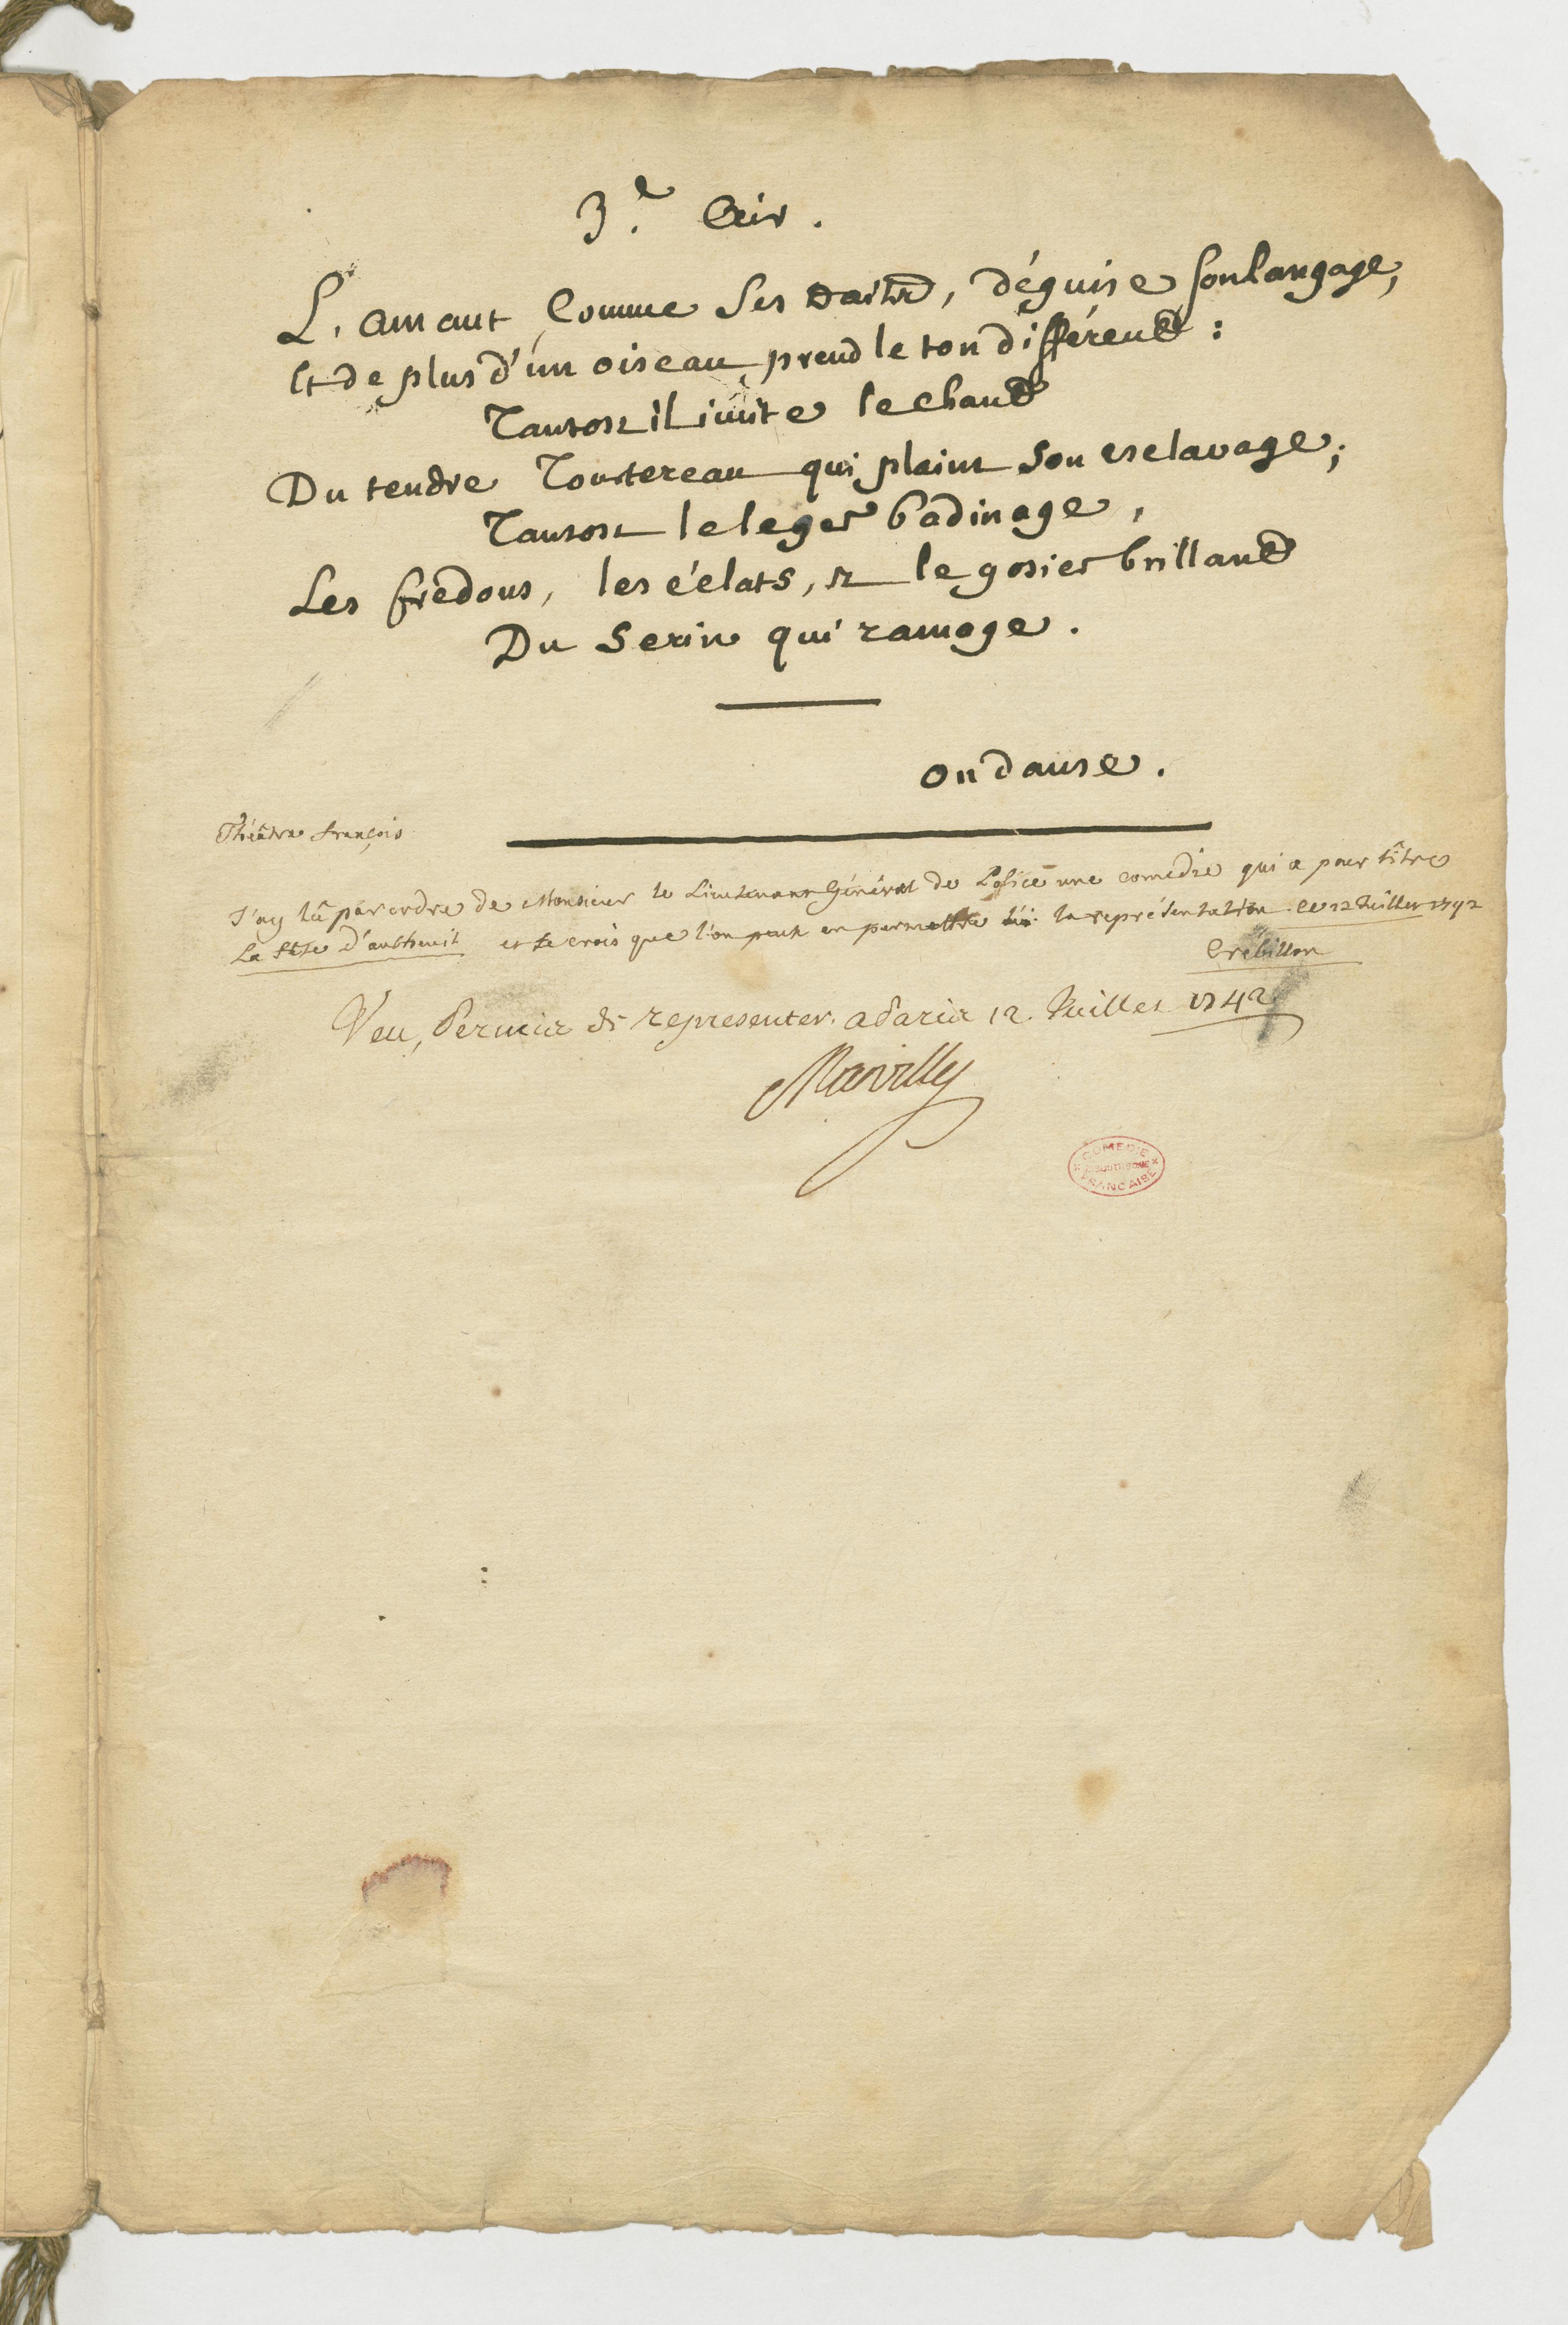 3.e Air.
L'amant comme ses traits, déguise son langage,
Et de plus d'un oiseau prend le ton différend :
Tantost il imite le chant
Du tendre Tourtereau qui plaint son esclavage ;
Tantost le leger badinage,
Les fredons, les éclats, et le gosier brillant
Du Serin qui ramage.
on danse.
Théâtre françois
J'ay lû par ordre de Monsieur le Lieutenant Général de Police une comedie qui a pour tître
La Fête d'autheuil et je crois que l'on peut en permettre la représentation. ce 12 Juillet 1742
Crébillon
Veu, Permis de representer. a Paris 12. Juillet 1742
Marville
COMEDIE
BIBLIOTHEQUE
FRANCAISE